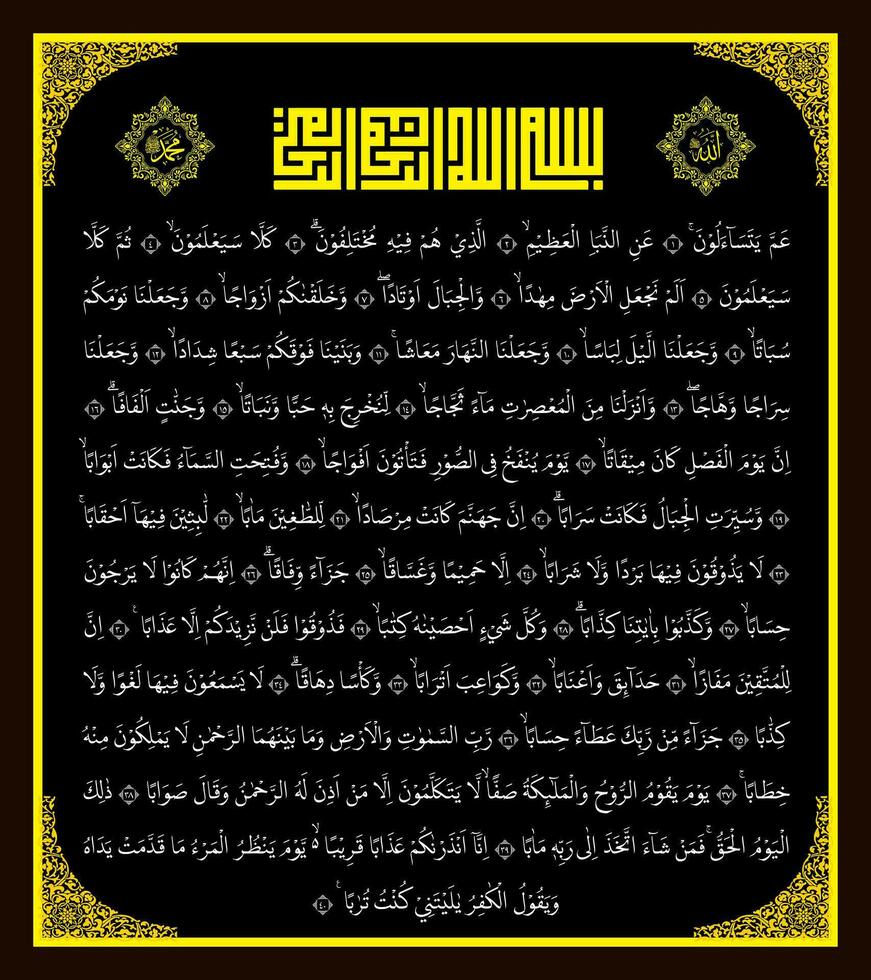 الله
بسم الله الرحمن الرحيم
محمد
عَمَّ يَتَسَاۤءَلُوْنَۚ ۝١ عَنِ النَّبَاِ الْعَظِيْمِۙ ۝٢ الَّذِيْ هُمْ فِيْهِ مُخْتَلِفُوْنَۗ ۝٣ كَلَّا سَيَعْلَمُوْنَۙ ۝٤ ثُمَّ كَلَّا
سَيَعْلَمُوْنَ ۝٥ اَلَمْ نَجْعَلِ الْاَرْضَ مِهٰدًاۙ ۝٦ وَّالْجِبَالَ اَوْتَادًاۖ ۝٧ وَّخَلَقْنٰكُمْ اَزْوَاجًاۙ ۝٨ وَّجَعَلْنَا نَوْمَكُمْ
سُبَاتًاۙ ۝٩ وَّجَعَلْنَا الَّيْلَ لِبَاسًاۙ ۝١٠ وَّجَعَلْنَا النَّهَارَ مَعَاشًاۚ ۝١١ وَبَنَيْنَا فَوْقَكُمْ سَبْعًا شِدَادًاۙ ۝١٢ وَّجَعَلْنَا
سِرَاجًا وَّهَّاجًاۖ ۝١٣ وَّاَنْزَلْنَا مِنَ الْمُعْصِرٰتِ مَاۤءً ثَجَّاجًاۙ ۝١٤ لِّنُخْرِجَ بِهٖ حَبًّا وَّنَبَاتًاۙ ۝١٥ وَّجَنّٰتٍ اَلْفَافًاۗ ۝١٦
اِنَّ يَوْمَ الْفَصْلِ كَانَ مِيْقَاتًاۙ ۝١٧ يَّوْمَ يُنْفَخُ فِى الصُّوْرِ فَتَأْتُوْنَ اَفْوَاجًاۙ ۝١٨ وَّفُتِحَتِ السَّمَاۤءُ فَكَانَتْ اَبْوَابًاۙ
۝١٩ وَّسُيِّرَتِ الْجِبَالُ فَكَانَتْ سَرَابًاۗ ۝٢٠ اِنَّ جَهَنَّمَ كَانَتْ مِرْصَادًاۙ ۝٢١ لِّلطّٰغِيْنَ مَاٰبًاۙ ۝٢٢ لّٰبِثِيْنَ فِيْهَآ اَحْقَابًاۚ
۝٢٣ لَا يَذُوْقُوْنَ فِيْهَا بَرْدًا وَّلَا شَرَابًاۙ ۝٢٤ اِلَّا حَمِيْمًا وَّغَسَّاقًاۙ ۝٢٥ جَزَاۤءً وِّفَاقًاۗ ۝٢٦ اِنَّهُمْ كَانُوْا لَا يَرْجُوْنَ
حِسَابًاۙ ۝٢٧ وَّكَذَّبُوْا بِاٰيٰتِنَا كِذَّابًاۗ ۝٢٨ وَكُلَّ شَيْءٍ اَحْصَيْنٰهُ كِتٰبًاۙ ۝٢٩ فَذُوْقُوْا فَلَنْ نَّزِيْدَكُمْ اِلَّا عَذَابًا ۚ ۝٣٠ اِنَّ
لِلْمُتَّقِيْنَ مَفَازًاۙ ۝٣١ حَدَاۤىِٕقَ وَاَعْنَابًاۙ ۝٣٢ وَّكَوَاعِبَ اَتْرَابًاۙ ۝٣٣ وَّكَأْسًا دِهَاقًاۗ ۝٣٤ لَا يَسْمَعُوْنَ فِيْهَا لَغْوًا وَّلَا
كِذّٰبًا ۝٣٥ جَزَاۤءً مِّنْ رَّبِّكَ عَطَاۤءً حِسَابًاۙ ۝٣٦ رَّبِّ السَّمٰوٰتِ وَالْاَرْضِ وَمَا بَيْنَهُمَا الرَّحْمٰنِ لَا يَمْلِكُوْنَ مِنْهُ
خِطَابًاۚ ۝٣٧ يَوْمَ يَقُوْمُ الرُّوْحُ وَالْمَلٰۤىِٕكَةُ صَفًّاۙ لَّا يَتَكَلَّمُوْنَ اِلَّا مَنْ اَذِنَ لَهُ الرَّحْمٰنُ وَقَالَ صَوَابًا ۝٣٨ ذٰلِكَ
الْيَوْمُ الْحَقُّۚ فَمَنْ شَاۤءَ اتَّخَذَ اِلٰى رَبِّهٖ مَاٰبًا ۝٣٩ اِنَّآ اَنْذَرْنٰكُمْ عَذَابًا قَرِيْبًا ەۙ يَّوْمَ يَنْظُرُ الْمَرْءُ مَا قَدَّمَتْ يَدَاهُ
وَيَقُوْلُ الْكٰفِرُ يٰلَيْتَنِيْ كُنْتُ تُرٰبًا ۚ ۝٤٠